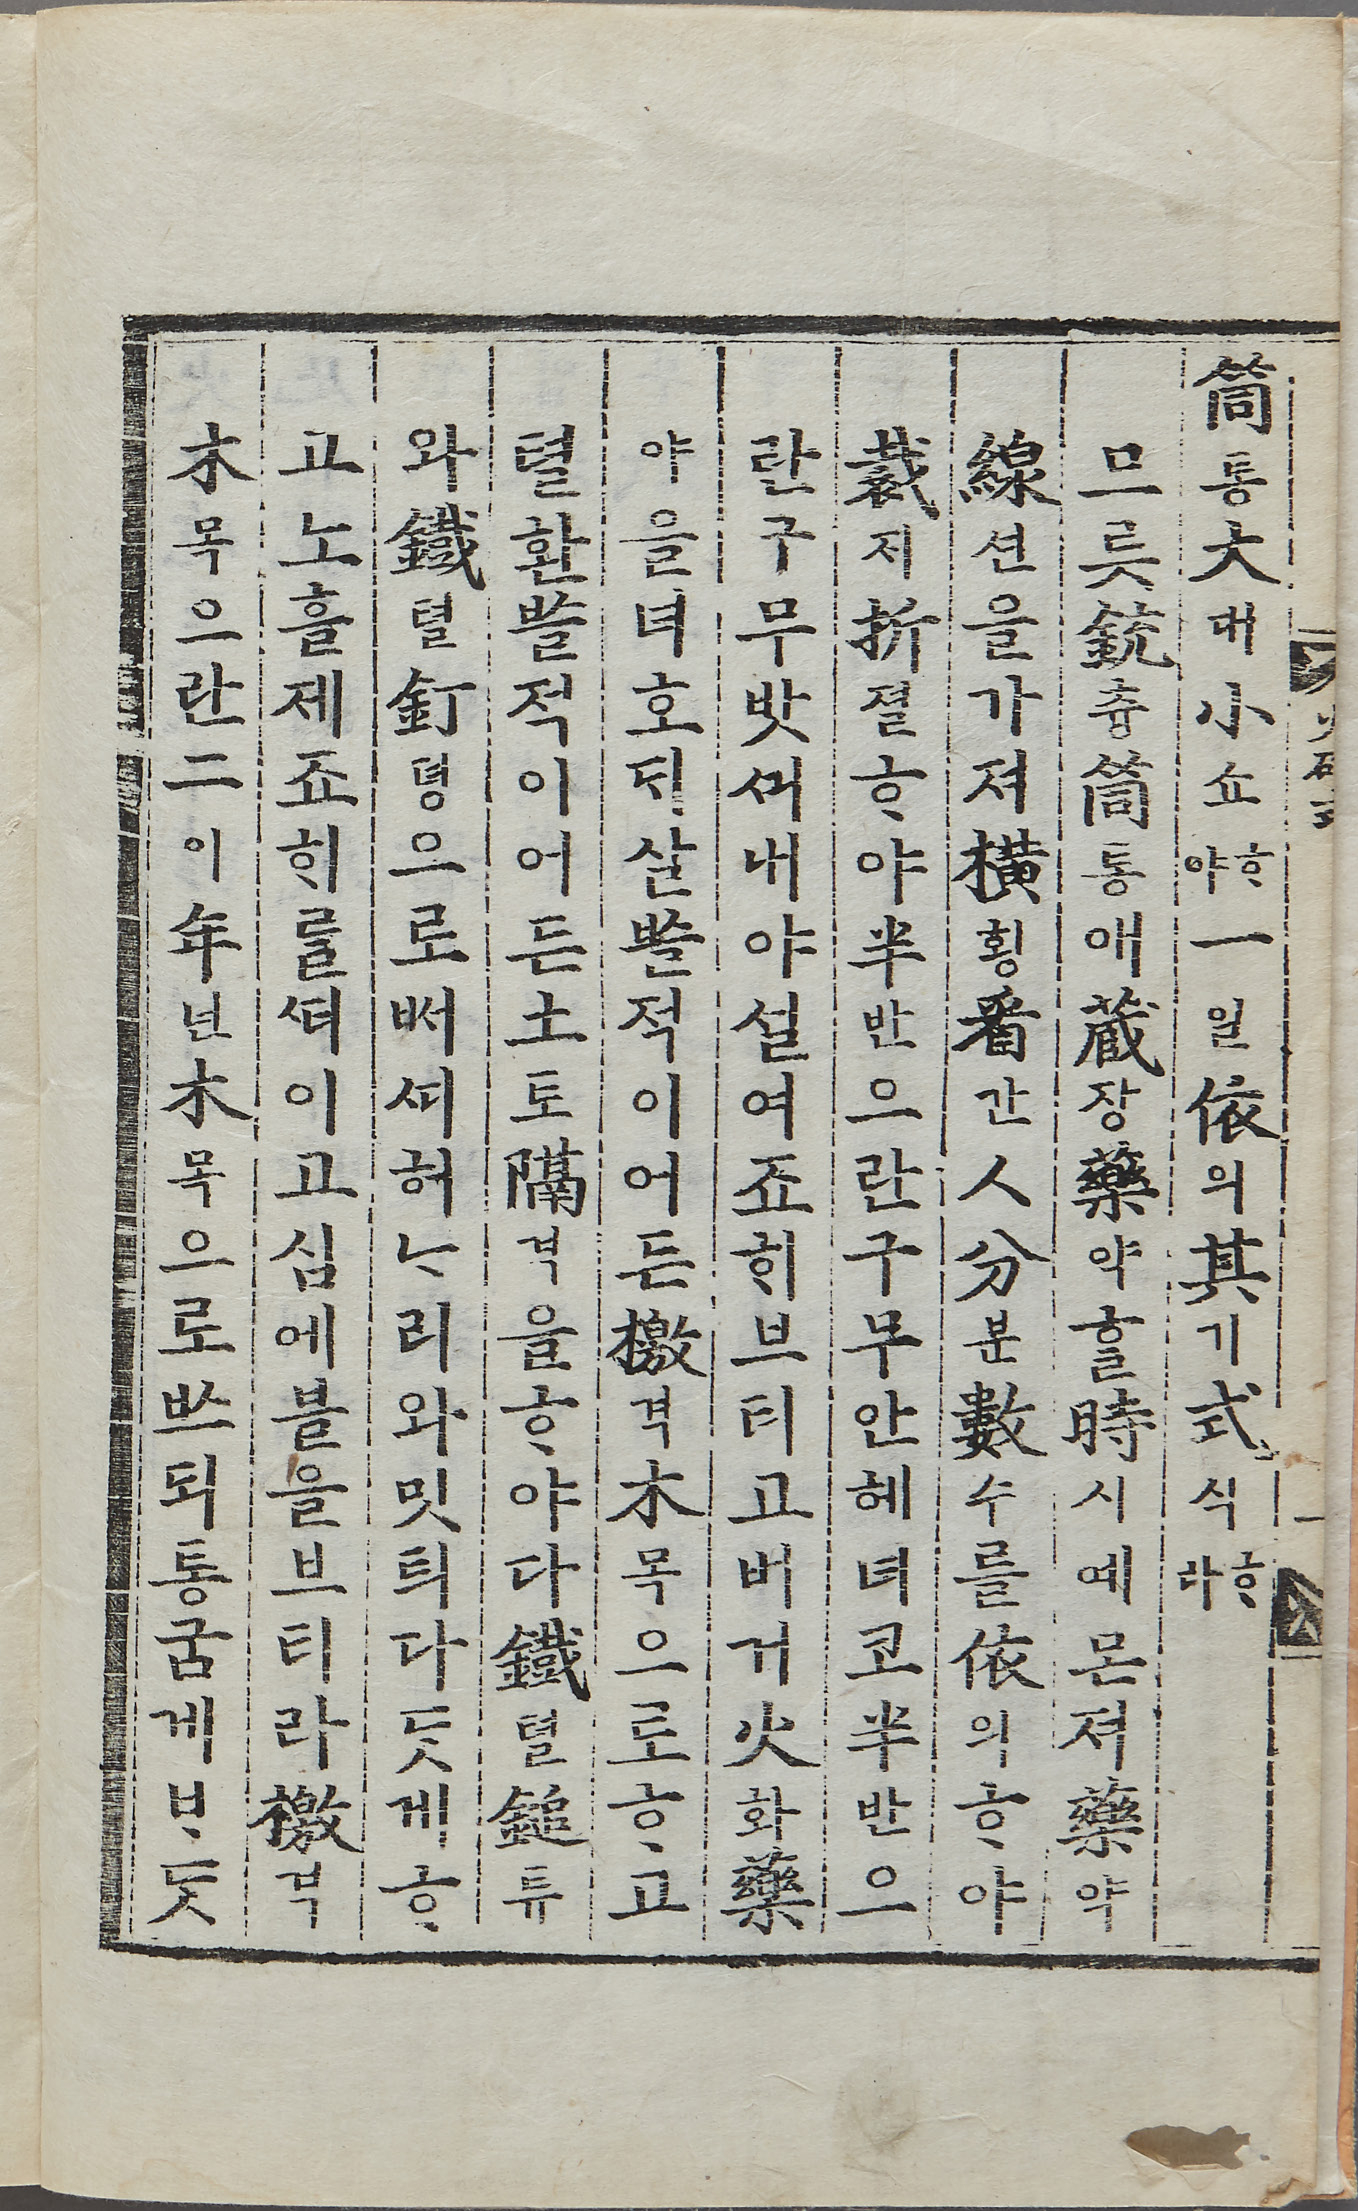 筒통大대小쇼ᄒᆞ야一일依의其기式식ᄒᆞ라
므릇銃츙筒통애蔵장藥약ᄒᆞᆯ時시예몬져藥약
線션을가져橫횡看간人分분數수를依의ᄒᆞ야
裁ᄌᆡ折졀ᄒᆞ야半반으란구무안헤녀코半반으
란구무밧ᄭᅴ내야설여죠ᄒᆡ브티고버거火화藥약
야을녀호ᄃᆡ살ᄡᅩᆯ적이어든檄격木목으로ᄒᆞ고
텰환ᄡᅩᆯ적이어든土토隔격을ᄒᆞ야다鐵텰鎚튜
와鐵텰釘뎡으로ᄡᅥᄯᅵ허ᄂᆞ리와밋틔다ᄃᆞᆺ게ᄒᆞ
고노흘제죠ᄒᆡ를ᄯᅧ이고심에블을브티라檄격
木목으란二이年년木목으로ᄡᅳ되통굼게ᄇᆞᄃᆞᆺ